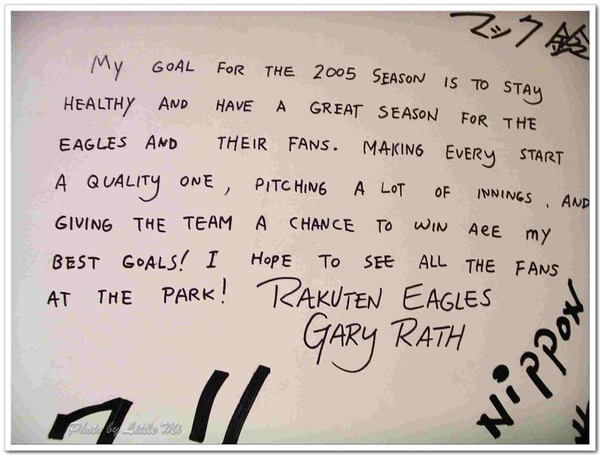 マック鈴
My GOAL FOR THE 2005 SEASON IS TO STAy
HEALTHY AND HAVE A GREAT SEASON FOR THE
EAGLES AND THEIR FANS. MAKING EVERY START
A QUALITY ONE, PITCHING A LOT OF INNINGS, AND
GIVING THE TEAM A CHANCE TO WIN ARE my
BEST GOALS! I HOPE TO SEE ALL THE FANS
AT THE PARK! RAKUTEN EAGLES
GARY RATH
NiPPON
Photo by Little Mi